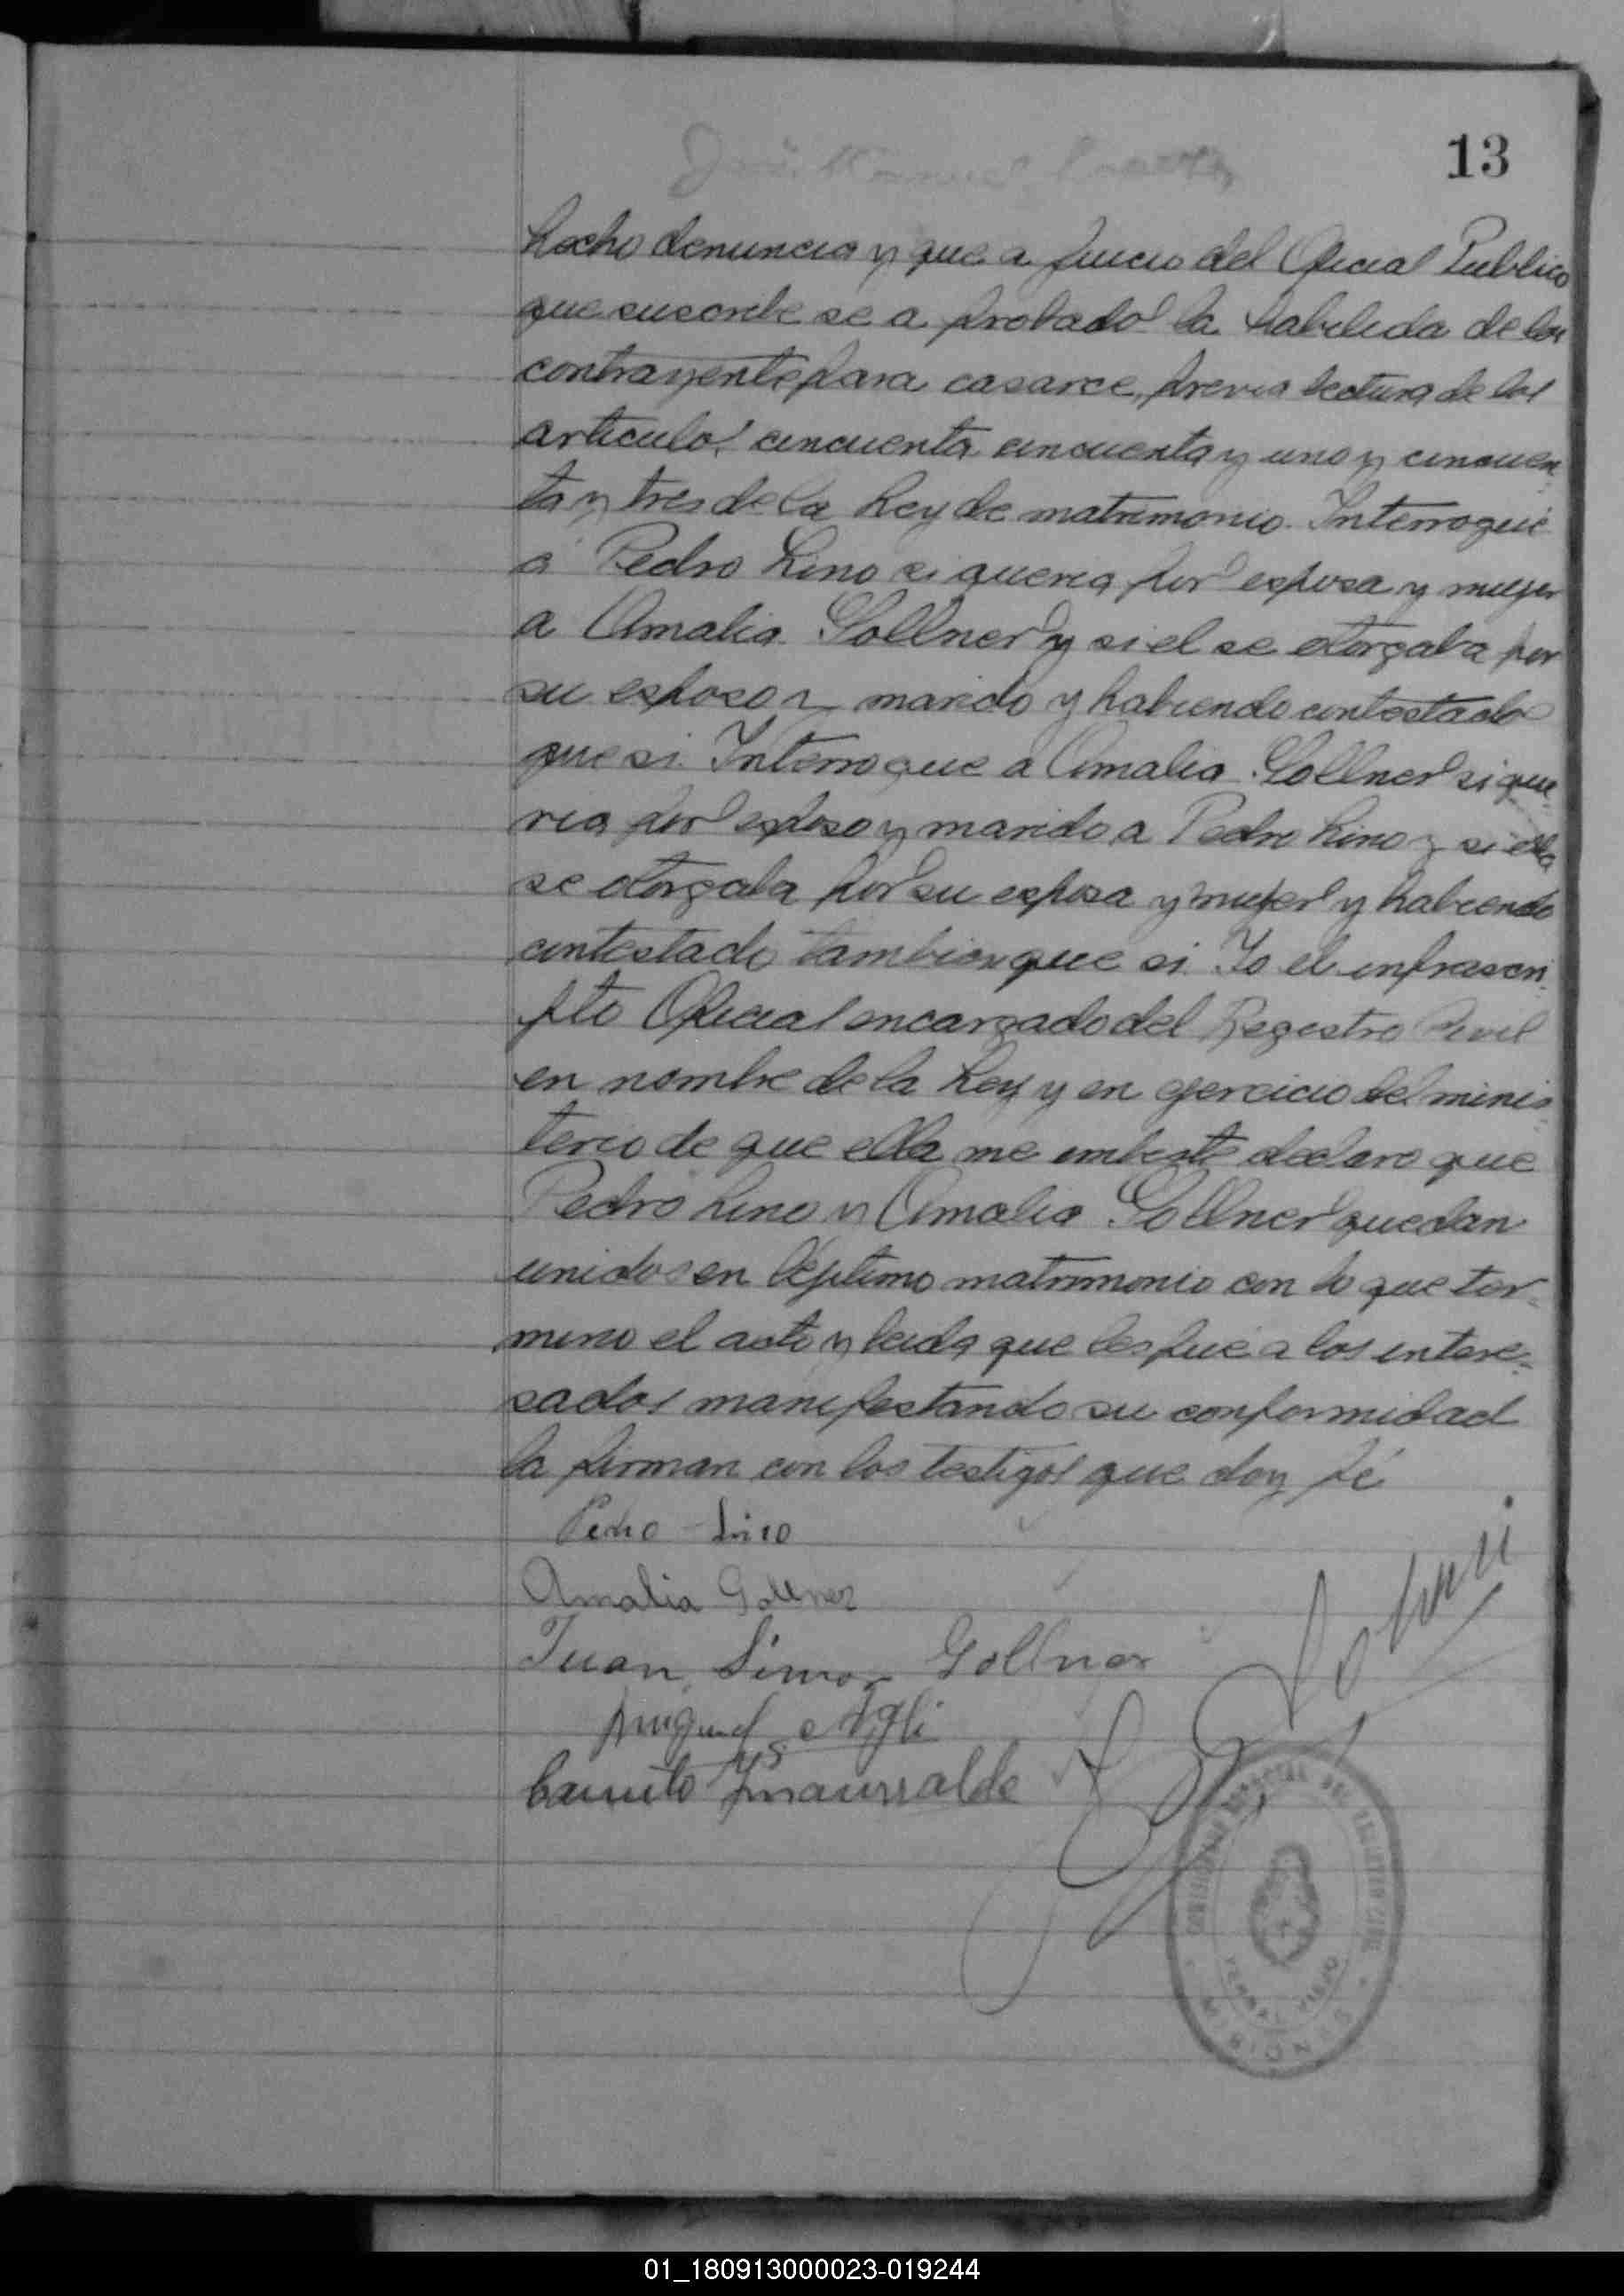 13
hecho denuncia y que a juicio del Oficial Publico
que suscribe se a probado la habilida de los
contrayente para casarce, previa lectura de los
articulos cincuenta cincuenta y uno y cincuen
ta y tres de la Ley de matrimonio. Interrogué
a Pedro Lino si queria por esposa y mujer
a Amalia Gollner y si el se otorgaba por
su esposo y marido y habiendo contestado
que si. Interrogue a Amalia Gollner si que
ria por esposo y marido a Pedro Lino y si ella
se otorgaba por su esposa y mujer y habiendo
contestado tambien que si. Yo el infrascri
pto Oficial encargado del Registro Civil
en nombre de la Ley y en ejercicio del minis
terio de que ella me embeste declaro que
Pedro Lino y Amalia Gollner quedan
unidos en lejitimo matrimonio con lo que ter-
mino el acto y leida que les fue a los intere-
sados manifestando su conformidad
la firman con los testigos que doy fé
Pedro Lino
Amalia Gollner
Juan Simon Gollner
Miguel
Camilo Ynsaurralde
DEL REGISTER CIVIL
MISIONES
01_180913000023-019244